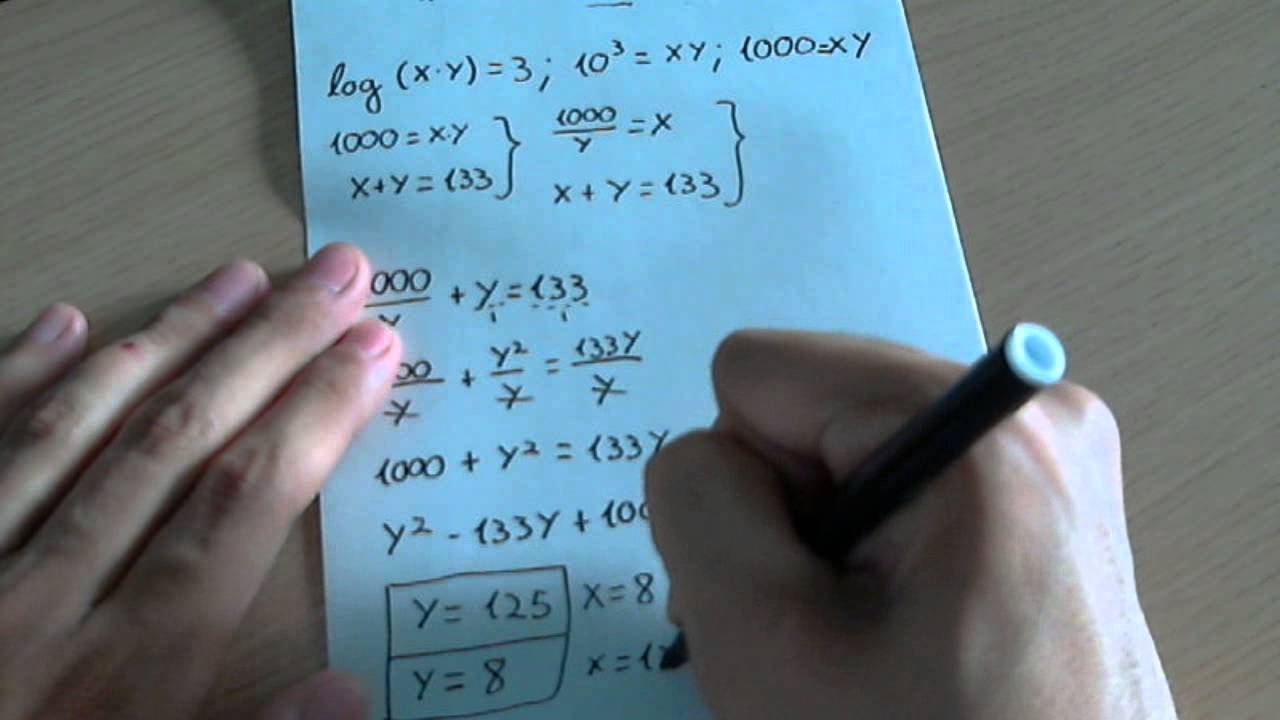 log (x·y) = 3 ; 10³ = xy ; 1000=xy
1000 = x·y } 1000/y = x }
x+y = 133 } x + y = 133 }
000/y + y = 133
00/y + y²/y = 133y/y
1000 + y² = 133y
y² - 133y + 100
y = 125 x = 8
y = 8 x = 12